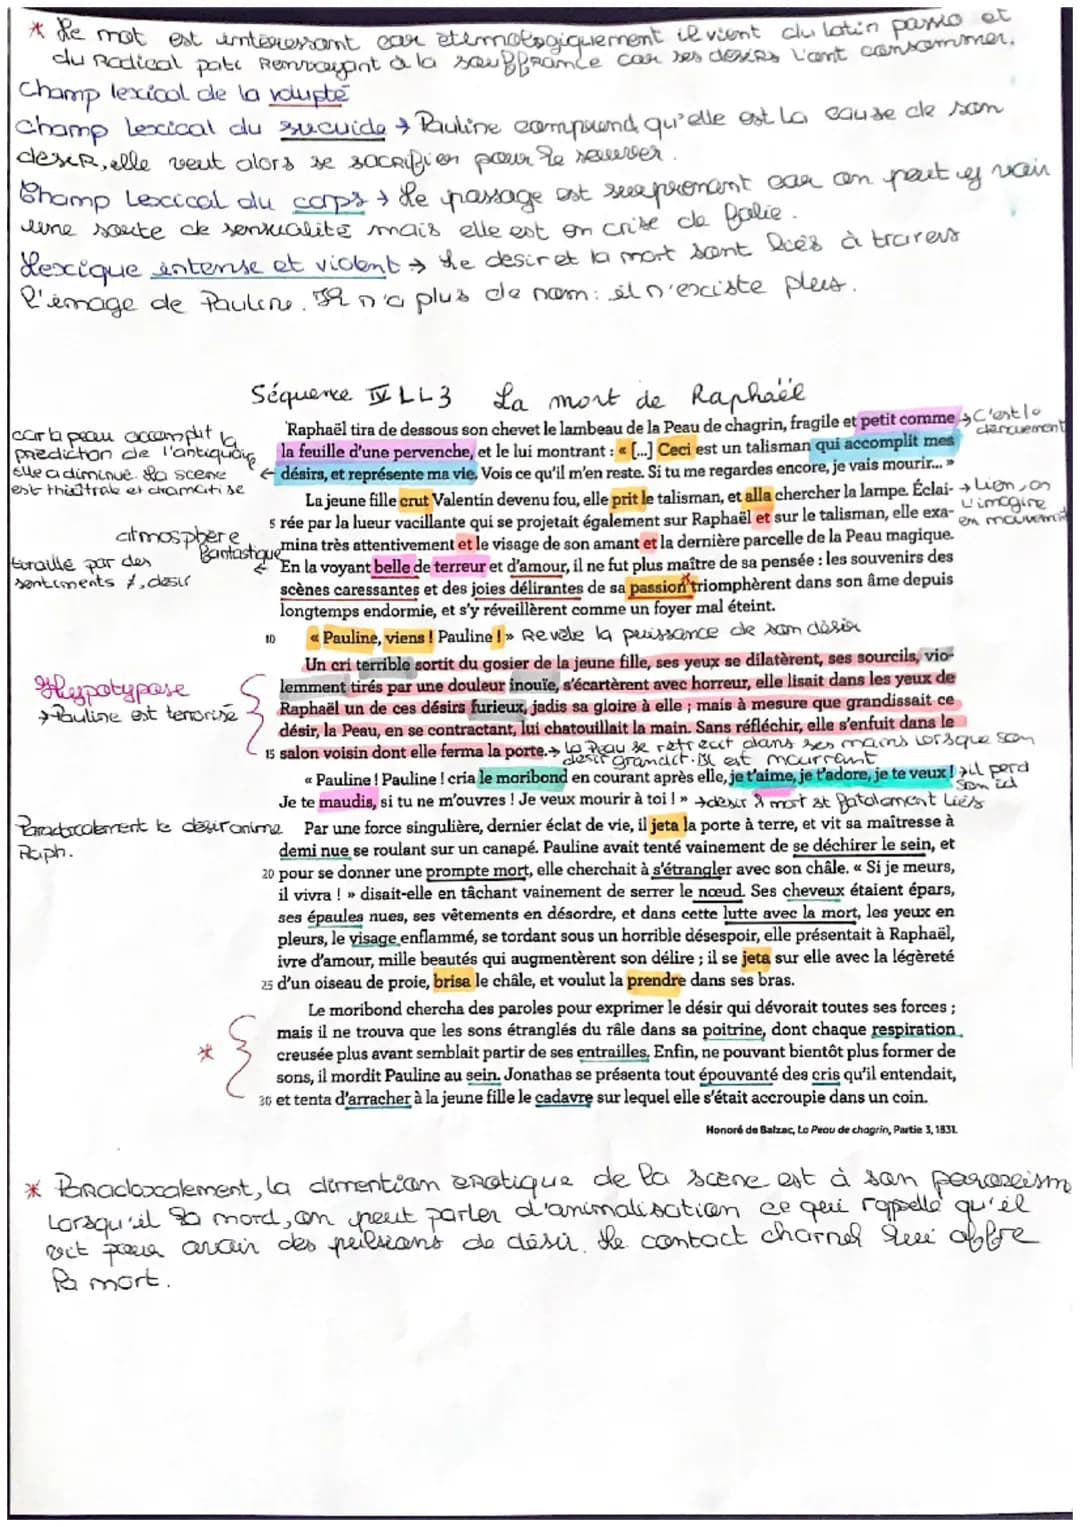 * Le mot est intéressant car étimologiquement il vient du latin passio et
du Radical pati Renvoyant à la souffrance car ses désirs l'ont consommer.
Champ lexical de la volupté
Champ Lexical du suicide → Pauline comprend qu'elle est la cause de son
désir, elle veut alors se sacrifier pour le sauver.
Champ Lexical du corps → Le passage est surprenant car on peut y voir
une sorte de sensualité mais elle est en crise de folie.
Lexique intense et violent → Le désir et la mort sont liés à travers
l'image de Pauline. Il n'a plus de nom : il n'existe plus.
Séquence IV LL3 La mort de Raphaël
Raphaël tira de dessous son chevet le lambeau de la Peau de chagrin, fragile et petit comme → C'est le
dénouement
car la peau accomplit la
prédiction de l'antiquaire
elle a diminué. La scène
est théâtrale et dramatise
la feuille d'une pervenche, et le lui montrant : « [...] Ceci est un talisman qui accomplit mes
← désirs, et représente ma vie. Vois ce qu'il m'en reste. Si tu me regardes encore, je vais mourir... »
La jeune fille crut Valentin devenu fou, elle prit le talisman, et alla chercher la lampe. Éclai- → Lien, on
l'imagine
en mouvement
5 rée par la lueur vacillante qui se projetait également sur Raphaël et sur le talisman, elle exa-
atmosphère
fantastique
mina très attentivement et le visage de son amant et la dernière parcelle de la Peau magique.
tiraillé par des
sentiments ≠, désir
← En la voyant belle de terreur et d'amour, il ne fut plus maître de sa pensée : les souvenirs des
scènes caressantes et des joies délirantes de sa passion* triomphèrent dans son âme depuis
longtemps endormie, et s'y réveillèrent comme un foyer mal éteint.
10 « Pauline, viens ! Pauline ! » Revèle la puissance de son désir
Un cri terrible sortit du gosier de la jeune fille, ses yeux se dilatèrent, ses sourcils, vio-
Hypotypose
→ Pauline est terrorisé
lemment tirés par une douleur inouïe, s'écartèrent avec horreur, elle lisait dans les yeux de
Raphaël un de ces désirs furieux, jadis sa gloire à elle ; mais à mesure que grandissait ce
désir, la Peau, en se contractant, lui chatouillait la main. Sans réfléchir, elle s'enfuit dans le
15 salon voisin dont elle ferma la porte. → la Peau se rétrécit dans ses mains lorsque son
désir grandit. Il est mourrant
« Pauline ! Pauline ! cria le moribond en courant après elle, je t'aime, je t'adore, je te veux ! → il perd
son id
Je te maudis, si tu ne m'ouvres ! Je veux mourir à toi ! » → désir & mort st fatalement liés
Paradoxalement le désir anime
Raph.
Par une force singulière, dernier éclat de vie, il jeta la porte à terre, et vit sa maîtresse à
demi nue se roulant sur un canapé. Pauline avait tenté vainement de se déchirer le sein, et
20 pour se donner une prompte mort, elle cherchait à s'étrangler avec son châle. « Si je meurs,
il vivra ! » disait-elle en tâchant vainement de serrer le nœud. Ses cheveux étaient épars,
ses épaules nues, ses vêtements en désordre, et dans cette lutte avec la mort, les yeux en
pleurs, le visage enflammé, se tordant sous un horrible désespoir, elle présentait à Raphaël,
ivre d'amour, mille beautés qui augmentèrent son délire ; il se jeta sur elle avec la légèreté
25 d'un oiseau de proie, brisa le châle, et voulut la prendre dans ses bras.
Le moribond chercha des paroles pour exprimer le désir qui dévorait toutes ses forces ;
mais il ne trouva que les sons étranglés du râle dans sa poitrine, dont chaque respiration
* creusée plus avant semblait partir de ses entrailles. Enfin, ne pouvant bientôt plus former de
sons, il mordit Pauline au sein. Jonathas se présenta tout épouvanté des cris qu'il entendait,
30 et tenta d'arracher à la jeune fille le cadavre sur lequel elle s'était accroupie dans un coin.
Honoré de Balzac, La Peau de chagrin, Partie 3, 1831.
* Paradoxalement, la dimention erotique de la scène est à son paroxeism
Lorsqu'il la mord, on peut parler d'animalisation ce qui rappelle qu'il
vit pour avoir des pulsions de désir. Le contact charnel lui offre
la mort.